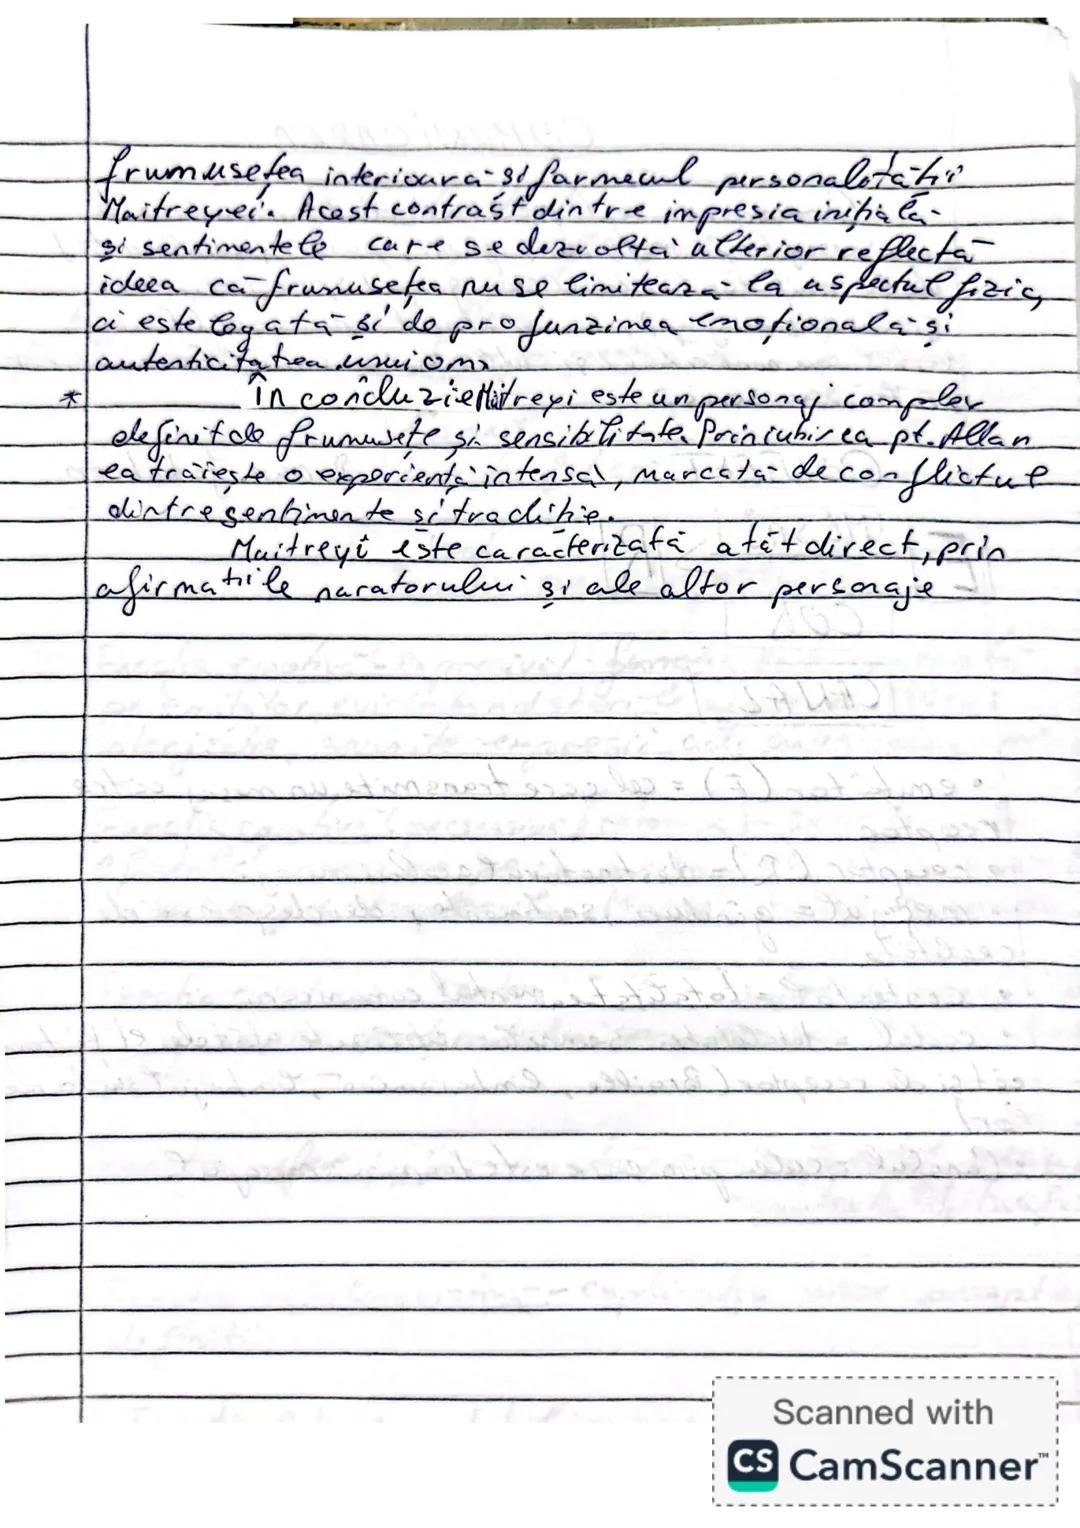 frumusețea interioară și farmecul personalotății
Maitreyei. Acest contrast dintre impresia inițială
și sentimentele care se dezvoltă ulterior reflectă
ideea că frumusețea nu se limitează la aspectul fizic,
ci este legată și de profunzimea emoțională și
autenticitatea unui om.
* În concluzie Maitreyi este un personaj complex
definit de frumusețe și sensibilitate. Prin iubirea pt. Allan
ea trăiește o experiență intensă, marcată de conflictul
dintre sentimente și tradiție.
Maitreyi este caracterizată atât direct, prin
afirmațiile naratorului și ale altor personaje
Scanned with
CS CamScanner™